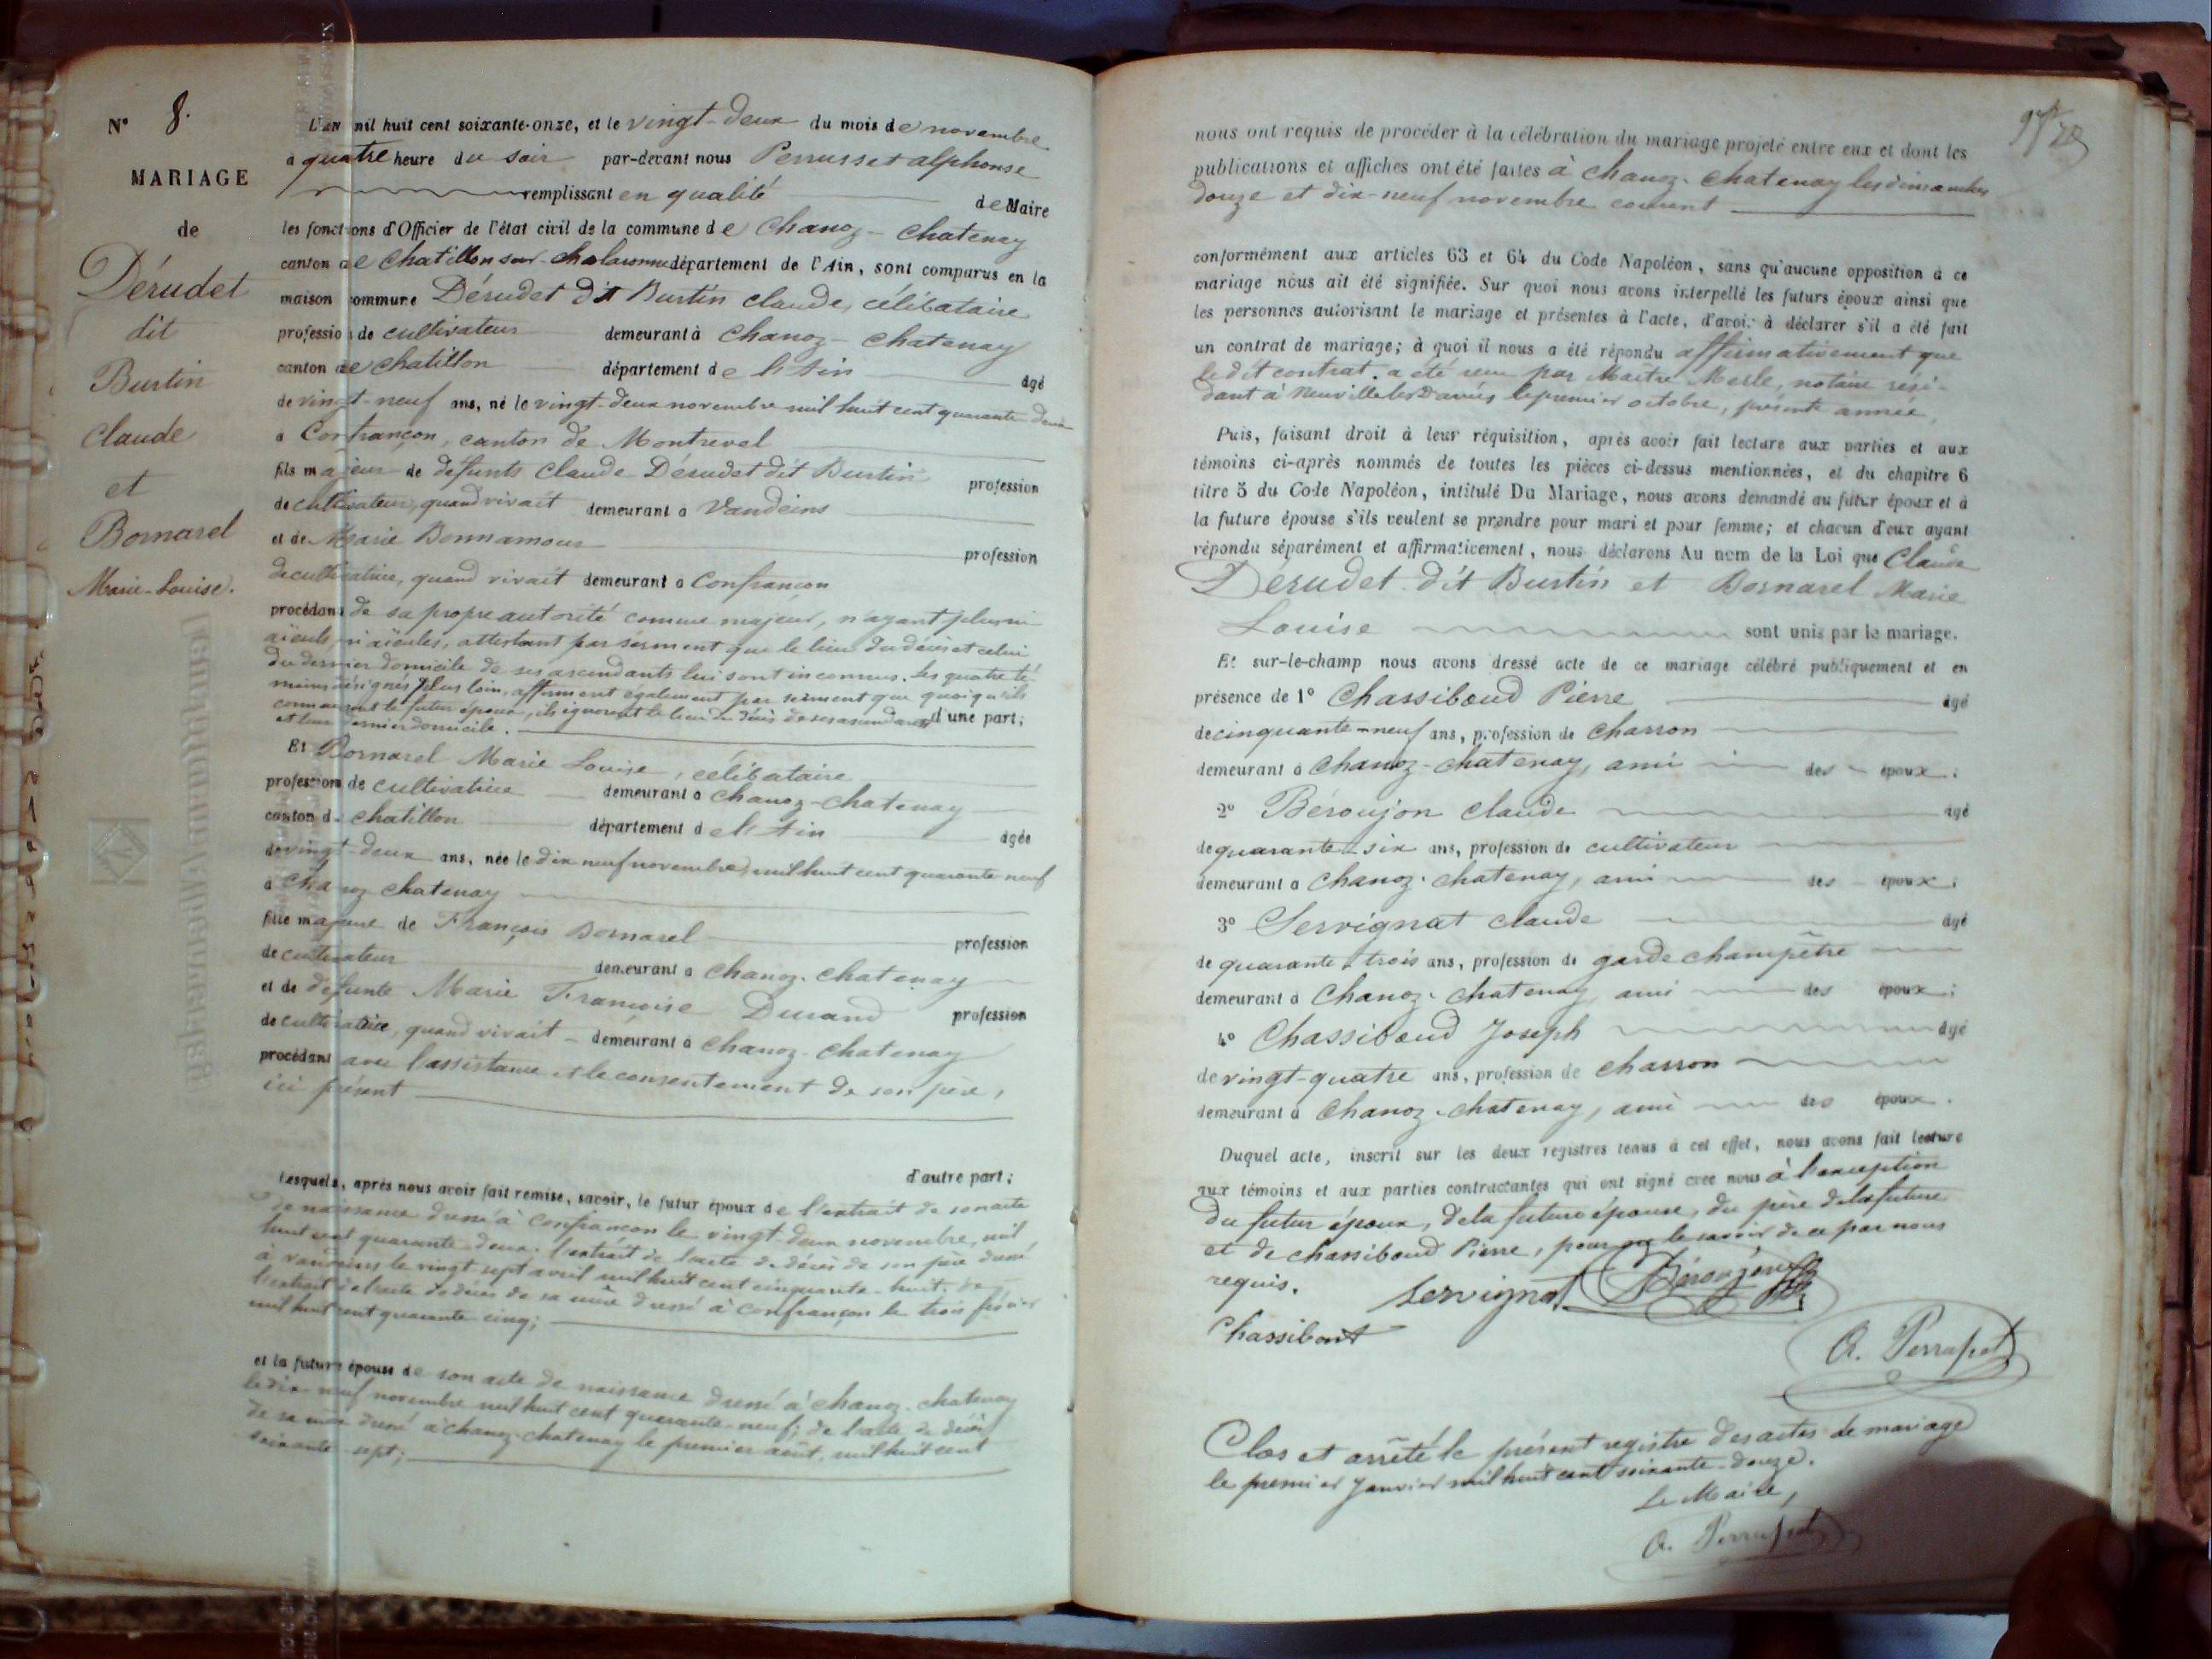 N° 8.
MARIAGE
de
Dérudet
dit
Burtin
Claude
et
Bornarel
Marie-Louise.
L'an mil huit cent soixante-onze, et le vingt-deux du mois de novembre
à quatre heure du soir par-devant nous Perrusset alphonse
remplissant en qualité de Maire
les fonctions d'Officier de l'état civil de la commune de Chanoz-Chatenay
canton de Chatillon sur Chalaronne département de l'Ain, sont comparus en la
maison commune Dérudet dit Burtin claude, célibataire
profession de cultivateur demeurant à Chanoz-Chatenay
canton de Chatillon département de l'Ain âgé
de vingt-neuf ans, né le vingt-deux novembre mil huit cent quarante deux
à Confrançon, canton de Montrevel
fils majeur de défunts Claude Dérudet dit Burtin profession
de cultivateur, quand vivait demeurant à Vandeins
et de Marie Bonnamour profession
de cultivatrice, quand vivait demeurant à Confrancon
procédant de sa propre autorité comme majeur, n'ayant plus ni
aïeuls, ni aïeules, attestant par serment que le lieu du décès et celui
du dernier domicile de ses ascendants lui sont inconnus. Les quatre té-
moins désignés plus loin, affirment également par serment que quoiqu'ils
connaissent le futur époux, ils ignorent le lieu du décès de ses ascendants d'une part;
et leur dernier domicile.
Et Bornarel Marie Louise, célibataire
profession de cultivatrice demeurant à Chanoz-Chatenay
canton de Chatillon département de l'Ain âgée
de vingt-deux ans, née le dix neuf novembre mil huit cent quarante neuf
à Chanoz Chatenay
fille majeure de François Bornarel profession
de cultivateur demeurant à Chanoz-Chatenay
et de défunte Marie Françoise Durand profession
de cultivatrice, quand vivait demeurant à Chanoz-Chatenay
procédant avec l'assistance et le consentement de son père,
ici présent
d'autre part;
Lesquels, après nous avoir fait remise, savoir, le futur époux de l'extrait de son acte
de naissance dressé à Confrancon le vingt-deux novembre, mil
huit cent quarante deux; l'extrait de l'acte de décès de son père dressé
à Vandeins le vingt sept avril mil huit cent cinquante-huit; de
l'extrait de l'acte de décès de sa mère dressé à Confrançon le trois février
mil huit cent quarante cinq;
et la future épouse de son acte de naissance dressé à Chanoz-Chatenay
le dix-neuf novembre mil huit cent quarante-neuf; de l'acte de décès
de sa mère dressé à Chanoz-Chatenay le premier août, mil huit cent
soixante-sept;
nous ont requis de procéder à la célébration du mariage projeté entre eux et dont les
publications et affiches ont été faites à Chanoz-Chatenay les dimanches
douze et dix-neuf novembre courant
conformément aux articles 63 et 64 du Code Napoléon, sans qu'aucune opposition à ce
mariage nous ait été signifiée. Sur quoi nous avons interpellé les futurs époux ainsi que
les personnes autorisant le mariage et présentes à l'acte, d'avoir à déclarer s'il a été fait
un contrat de mariage; à quoi il nous a été répondu affirmativement que
le dit contrat a été reçu par Maître Merle, notaire rési-
dant à Neuville les Dames le premier octobre, présente année
Puis, faisant droit à leur réquisition, après avoir fait lecture aux parties et aux
témoins ci-après nommés de toutes les pièces ci-dessus mentionnées, et du chapitre 6
titre 5 du Code Napoléon, intitulé Du Mariage, nous avons demandé au futur époux et à
la future épouse s'ils veulent se prendre pour mari et pour femme; et chacun d'eux ayant
répondu séparément et affirmativement, nous déclarons Au nom de la Loi que Claude
Dérudet dit Burtin et Bornarel Marie
Louise sont unis par le mariage.
Et sur-le-champ nous avons dressé acte de ce mariage célébré publiquement et en
présence de 1° Chassiboud Pierre âgé
de cinquante-neuf ans, profession de charron
demeurant à Chanoz-Chatenay, ami des époux;
2° Béroujon claude âgé
de quarante-six ans, profession de cultivateur
demeurant à Chanoz-Chatenay, ami des époux;
3° Servignat claude âgé
de quarante-trois ans, profession de garde champêtre
demeurant à Chanoz-Chatenay ami des époux;
4° Chassiboud Joseph âgé
de vingt-quatre ans, profession de charron
demeurant à Chanoz-Chatenay, ami des époux.
Duquel acte, inscrit sur les deux registres tenus à cet effet, nous avons fait lecture
aux témoins et aux parties contractantes qui ont signé avec nous à l'exception
du futur époux, de la future épouse, du père de la future
et de Chassiboud Pierre, pour ne le savoir de ce par nous
requis.
Servignat Béroujon
Chassibout
A. Perrusset
Clos et arrêté le présent registre des actes de mariage
le premier Janvier mil huit cent soixante-douze.
Le Maire,
A. Perrusset